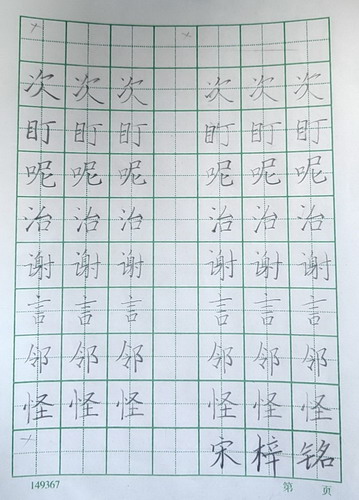 次次次次次次
盯盯盯盯盯盯
呢呢呢呢呢呢
治治治治治治
谢谢谢谢谢谢
言言言言言言
邻邻邻邻邻邻
怪怪怪怪怪怪
宋梓铭
149367 第 页